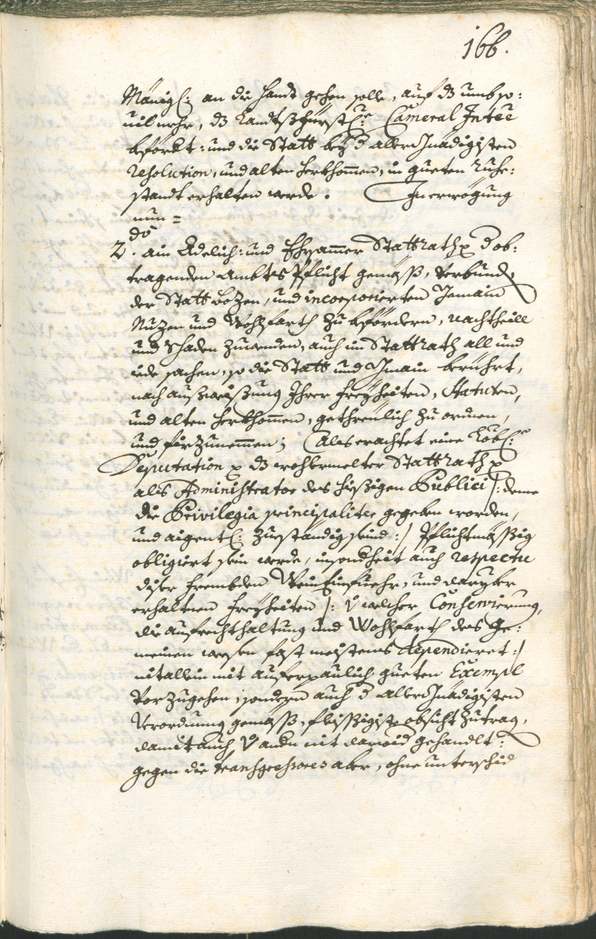 166.
Mänigl: an die Handt gehen solle, auf dz umb so:
vil mehr, dz Landtsfürstl: Cameral Intee
befördt: und die Statt bey d allergnädigisten
resolution, und alten herkhommen, in gueten Ruhe:
standt erhalten werde. In erwögung
nun =
do
2. ain Edelich: und Ehrsamer Stattrath x ob:
tragenden Ambts Pflicht gemäß, verbundn
der Statt Bozen, und incorporierten Gmain
Nuzen und Wohlfarth zu befördern, nachthaill
und Schaden zuwenden, auch im Stattrath all und
iede sachen, so die Statt und Gmain berührt,
nach außweisung Ihrer freyheiten, Statuten,
und alten herkhommen, getreulich zu ordnen,
und fürzunemmen; Als erachtet eine Löbl:
Deputation x dz wohlermelter Stattrath x
als Administrator des hiesigen Publici /: deme
die Privilegia principaliter gegeben worden,
und aigentl: zueständig seind :/ Pflichtmässig
obligiert sein werde, insonderheit auch respectu
diser frembden Wein Einfuehr, und darüber
erhaltnen freyheiten /: v welcher Conservierung,
die aufrechthaltung und Wohlfarth des Ge:
meinen wesen fast meistens dependiert :/
nit allein mit auferpaulich gueten Exempl
vorzugehen, sondern auch d allergnädigisten
Verordnung gemäß, fleissigist obsicht zutragen,
damit auch v andn nit darwid gehandlt:
gegen die transgressores aber, ohne unterschid